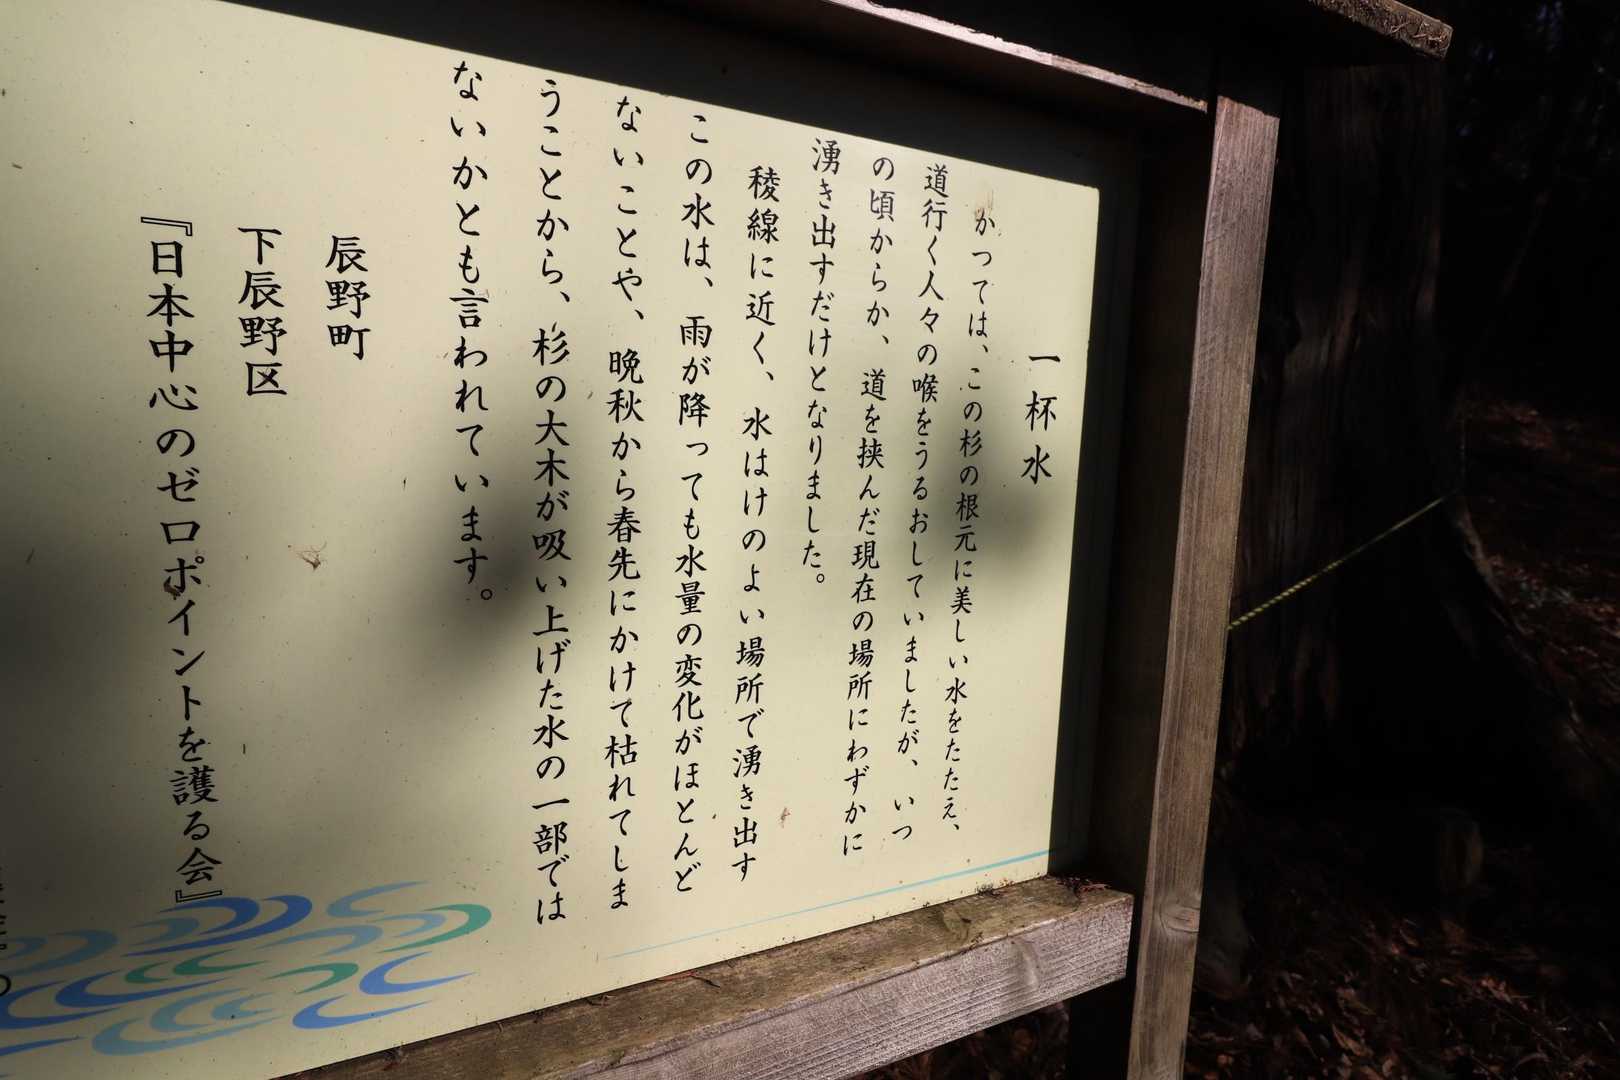 一杯水
かつては、この杉の根元に美しい水をたたえ、
道行く人々の喉をうるおしていましたが、いつ
の頃からか、道を挟んだ現在の場所にわずかに
湧き出すだけとなりました。
稜線に近く、水はけのよい場所で湧き出す
この水は、雨が降っても水量の変化がほとんど
ないことや、晩秋から春先にかけて枯れてしま
うことから、杉の大木が吸い上げた水の一部では
ないかとも言われています。
辰野町
下辰野区
『日本中心のゼロポイントを護る会』